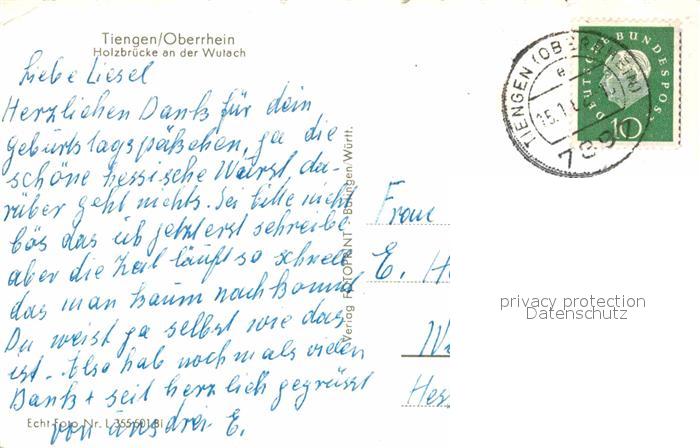 Tiengen/Oberrhein
Holzbrücke an der Wutach
Liebe Liesel
Herzlichen Dank für dein
Geburtstagspäkchen, ja die
schöne hessische Wurst, da-
rüber geht nichts. Sei bitte nicht
bös das ich jetzt erst schreibe
aber die Zeit läuft so schnell
das man kaum nachkommt
Du weist ja selbst wie das
ist. Also hab nochmals vielen
Dank + seit herzlich gegrüsst
von uns drei E.
Echt-Foto Nr. L 355501 Bi
Verlag FOTOPRINT - Büringen/Württ.
TIENGEN (OBERRHEIN)
e
15.1.6
789
DEUTSCHE BUNDESPOST
10
Frau
E. H
W
Hess
privacy protection
Datenschutz